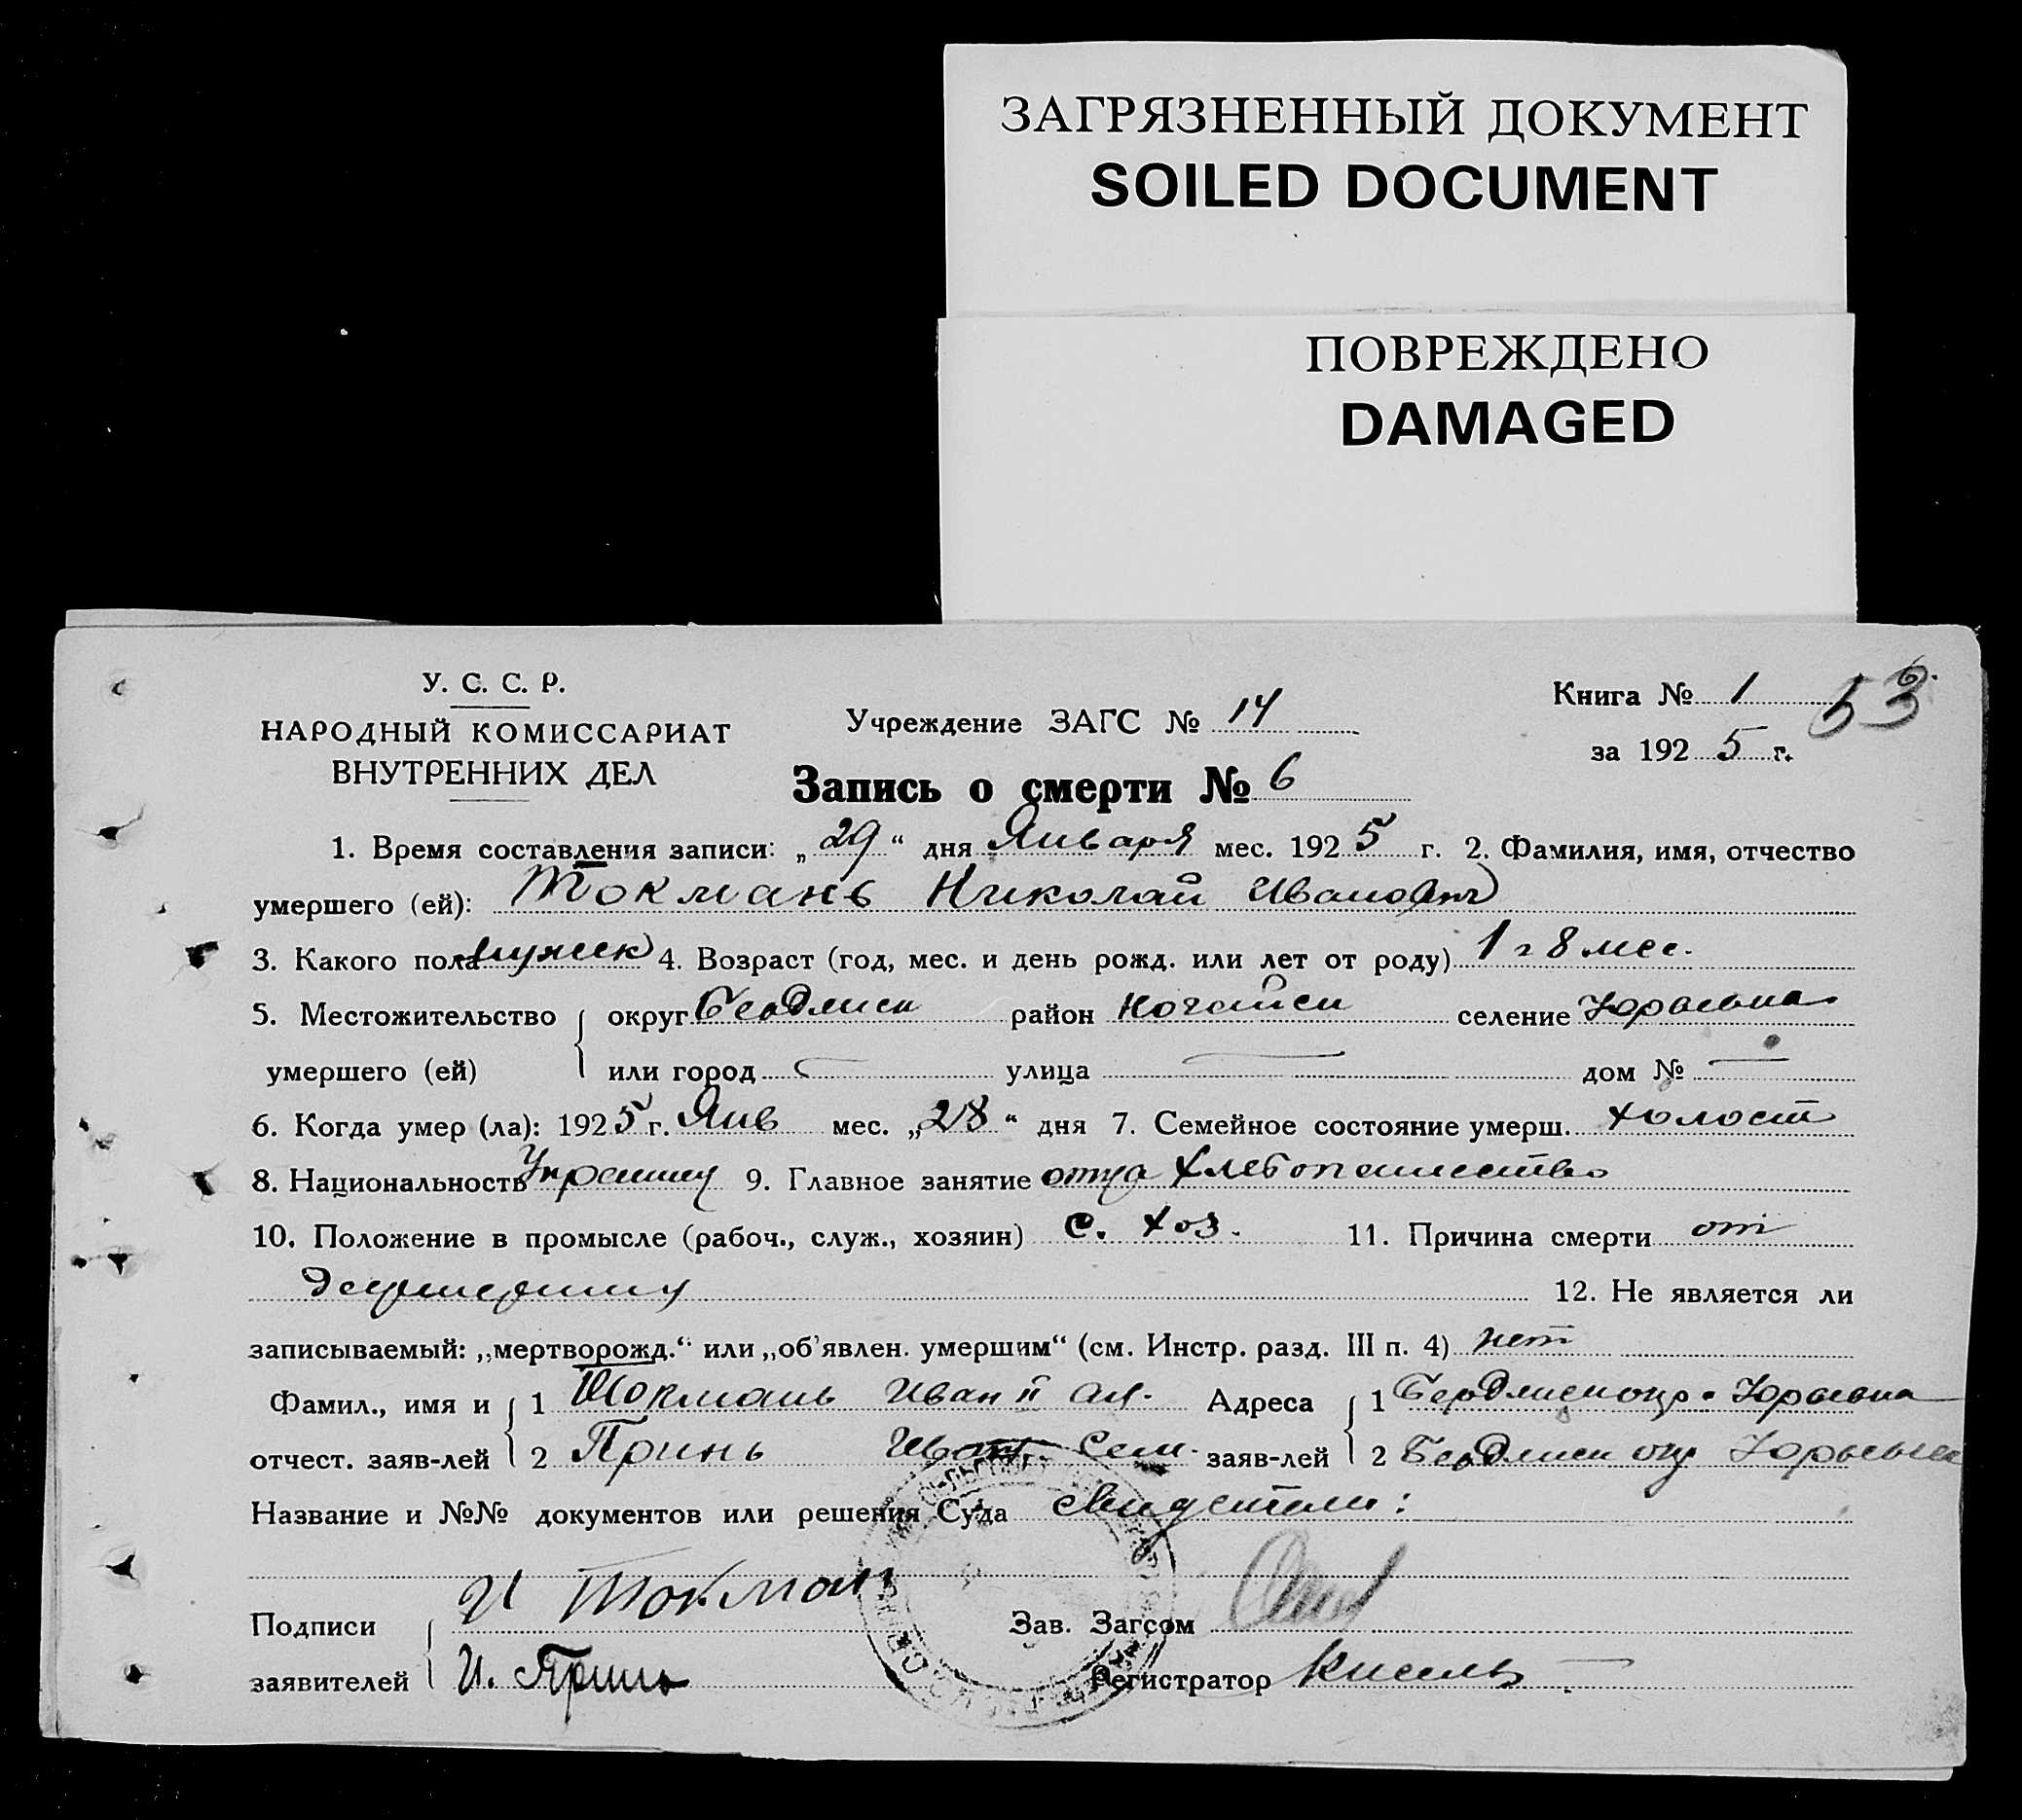 ЗАГРЯЗНЕННЫЙ ДОКУМЕНТ
SOILED DOCUMENT
ПОВРЕЖДЕНО
DAMAGED
У. С. С. Р.
НАРОДНЫЙ КОМИССАРИАТ
ВНУТРЕННИХ ДЕЛ
Учреждение ЗАГС № 14
Книга № 1 53
за 1925 г.
Запись о смерти № 6
1. Время составления записи: „29“ дня Января мес. 1925 г. 2. Фамилия, имя, отчество
умершего (ей): Токмань Николай Иванович
3. Какого пола мужск 4. Возраст (год, мес. и день рожд. или лет от роду) 1 г 8 мес.
5. Местожительство округ Бердянск район Ногайск селение Юрьевка
умершего (ей) или город — улица — дом № —
6. Когда умер (ла): 1925 г. Янв мес. „28“ дня 7. Семейное состояние умерш. холост
8. Национальность Украинец 9. Главное занятие отца хлебопашество
10. Положение в промысле (рабоч., служ., хозяин) с. хоз. 11. Причина смерти от
12. Не является ли
записываемый: „мертворожд.“ или „об'явлен. умершим“ (см. Инстр. разд. III п. 4) нет
Фамил., имя и 1 Токмань Иван Адреса 1 Бердянск окр. Юрьевка
отчест. заяв-лей 2 Принь Иван Сем. заяв-лей 2 Бердянск окр Юрьевка
Название и №№ документов или решения Суда свидетели:
И Токмань
Подписи Зав. Загсом
заявителей И. Принь Регистратор Кисиль